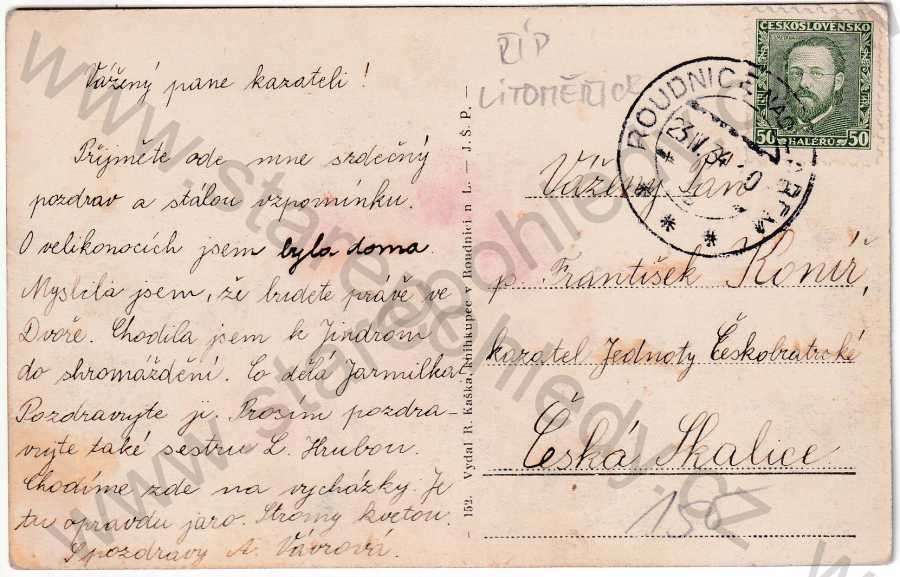 Vážený pane kazateli!
Přijměte ode mne srdečný
pozdrav a stálou vzpomínku.
O velikonocích jsem byla doma.
Myslila jsem, že budete právě ve
Dvoře. Chodila jsem k Jindrom
do shromáždění. Co dělá Jarmilka?
Pozdravujte ji. Prosím pozdra-
vujte také sestru L. Hrubou.
Chodíme zde na vycházky. Je
tu opravdu jaro. Stromy kvetou.
S pozdravy A. Vávrová.
152. Vydal R. Kaška, knihkupec v Roudnici n L. — J. Š. P. —
ŘÍP
LITOMĚŘICE
ČESKOSLOVENSKO
50 HALÉŘŮ 50
ROUDNICE NAD LABEM
23.IV.34
Vážený Pan
p. František Koníř,
kazatel Jednoty Českobratrské
Česká Skalice
150
www.starepohledy.cz